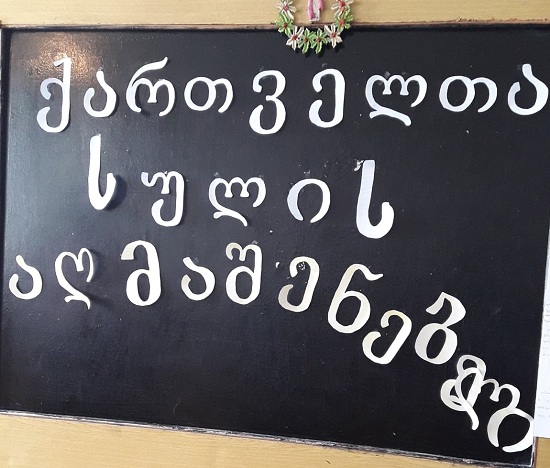 ქართველთა
სულის
აღმაშენებელი